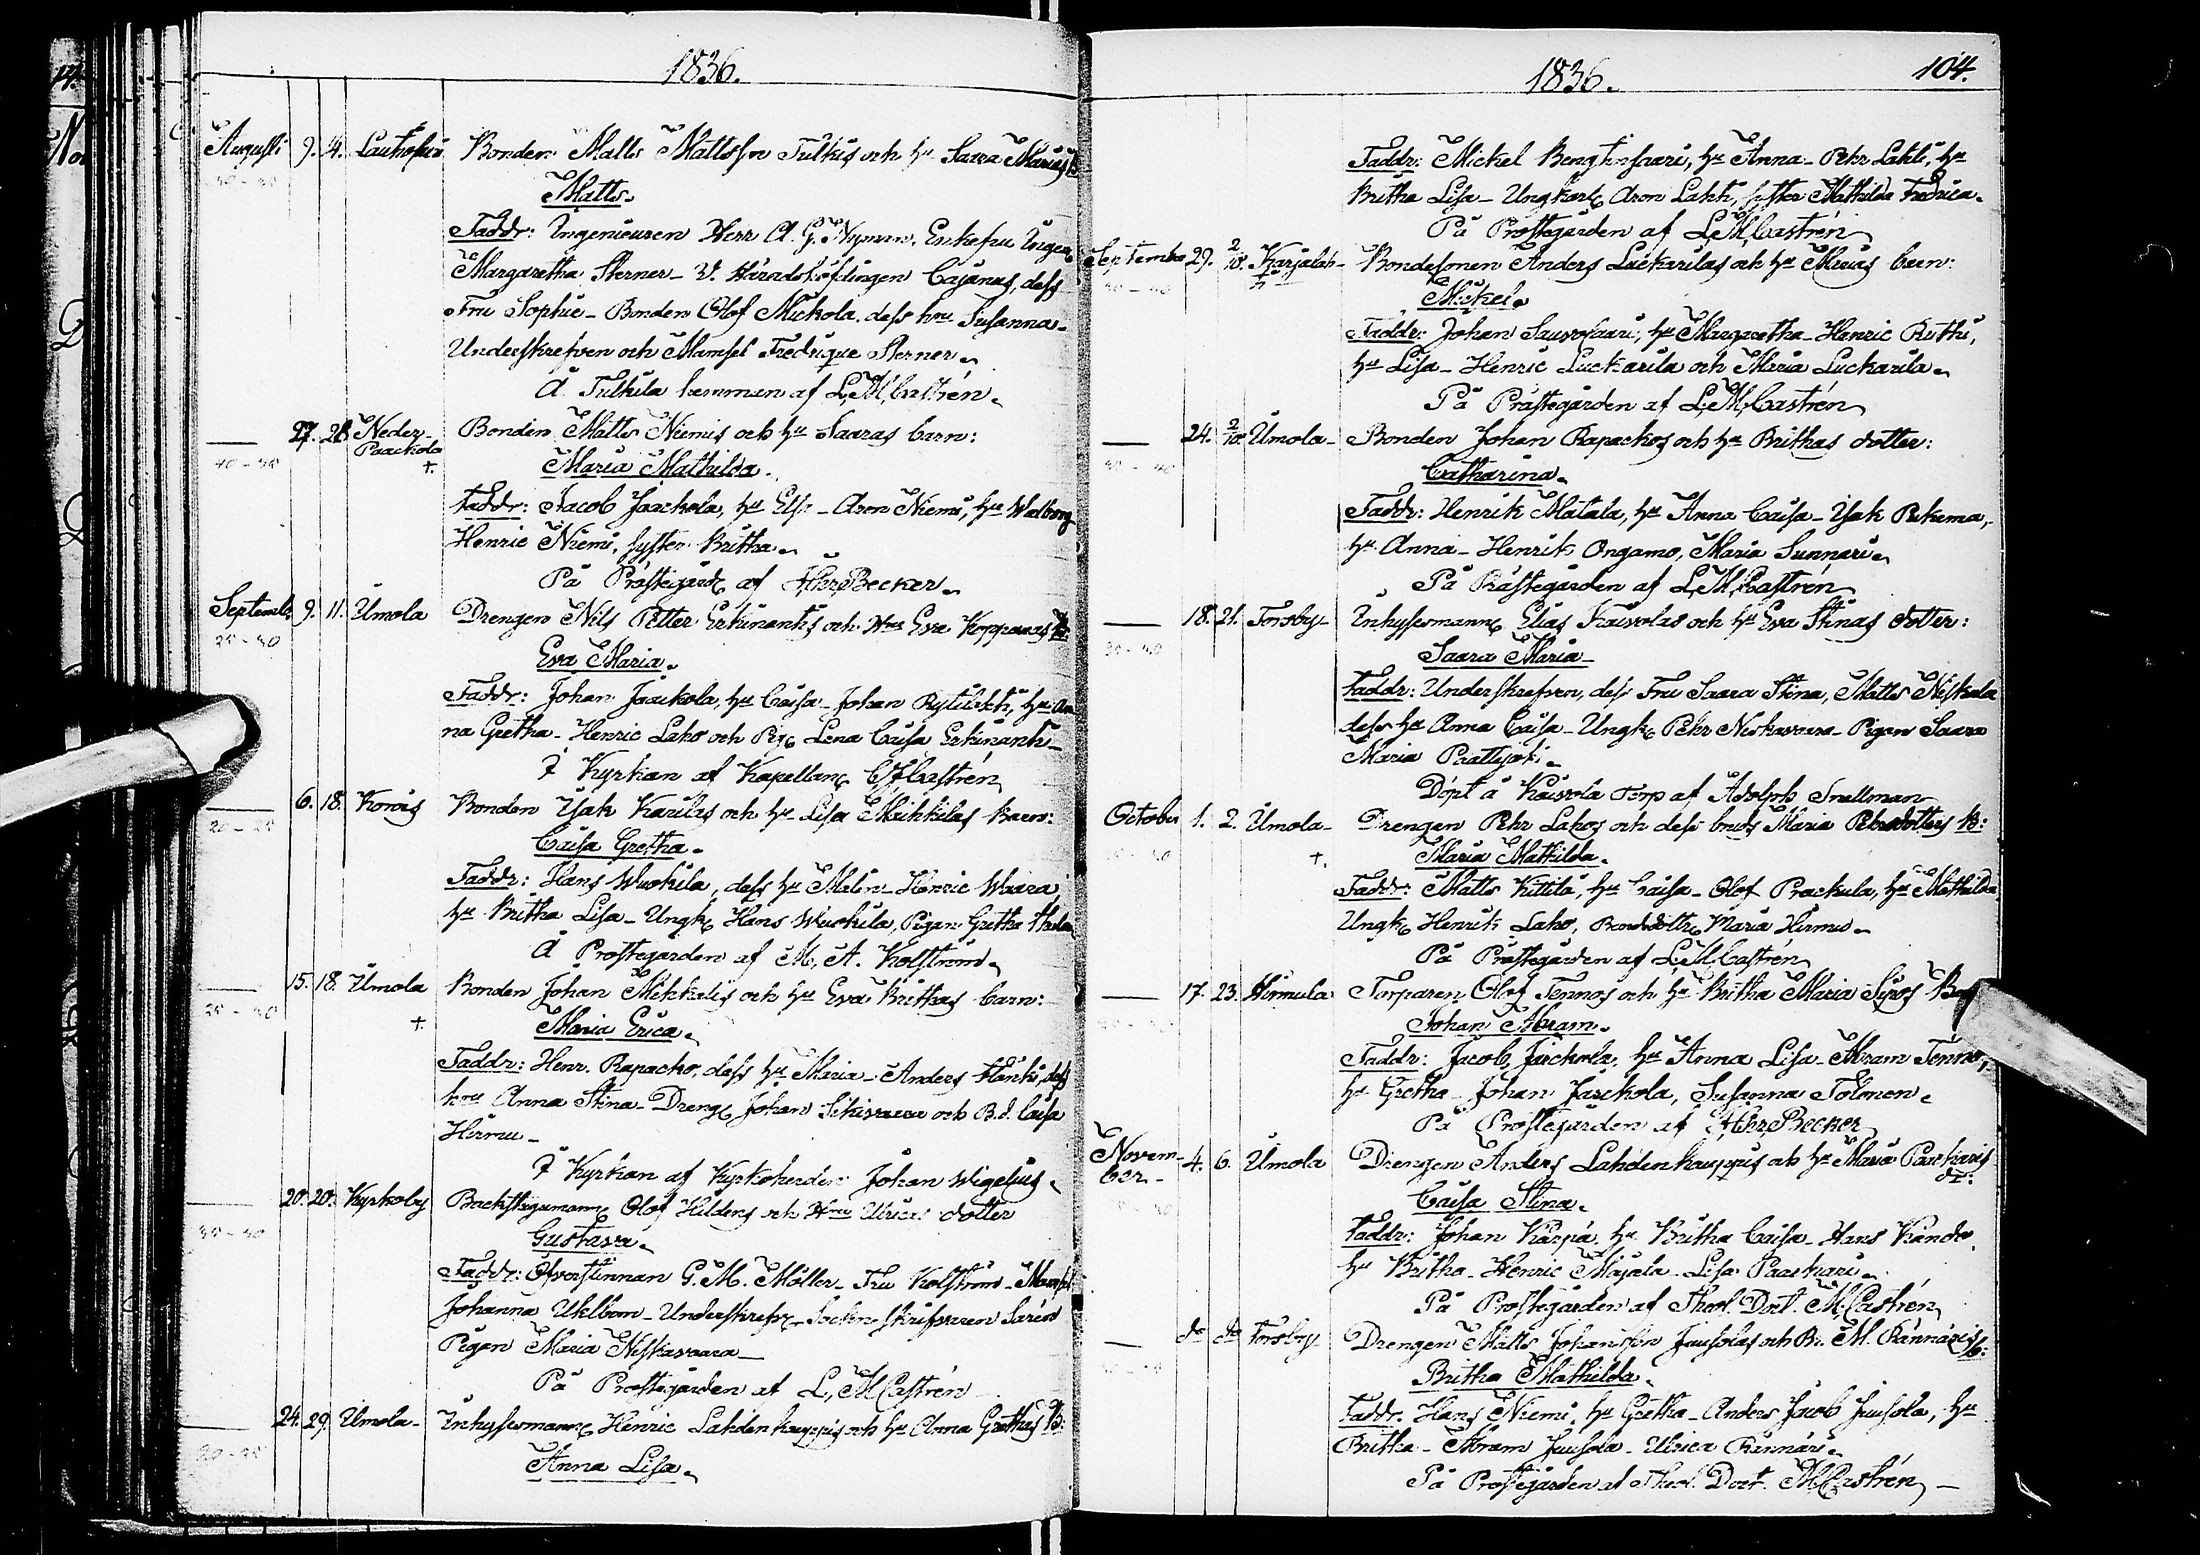 1836.
Augusti 9. 4. Bonden Matts Mattsson Tulkis och hu Saara Marias B
30-35 Matts.
Faddr: Ingenieuren Herr A. G. Nyman, Enkefru
Margaretha Sterner - V. Häradshöfdingen Cajanus, dess
Fru Sophie - Bonden Olof Mickola, dess hru Susanna -
Underskrefven och Mamsel Fredrique Sterner.
Å Tulkila hemman af L. M. Castrén.
27. 28. Neder- Bonden Matts Niemis och hu Saaras barn:
Paackola
40-45 + Maria Mathilda.
Faddr: Jacob Jaackola, hu Elsa - Aron Niemi, hu Walborg
Henric Niemi, syster Britha.
På Prästegård af Becker.
Septemb. 9. 11. Umola Drengen Nils Petter Erkinanttis och Hru Eva Kopparas
25-30 Eva Maria.
Faddr: Johan Jaackola, hu Caisa - Johan Rytilahti, hu An
na Gretha - Henric Laho och Pig. Lena Caisa Erkinantti -
I Kyrkan af Kapellan Castrén
6. 18. Bonden Isak Karilas och hu Lisa Mickkilas Barn:
20-25 Caisa Gretha.
Faddr: Hans Wuokila, dess hu Malin - Henric Waara,
hu Britha Lisa - Ungk. Hans Wuokila, Pigan Gretha
Å Prostegården af M. A. Kolström.
15. 18. Umola Bonden Johan Mikkolis och hu Eva Brithas barn:
25-30 + Maria Erica.
Faddr: Henr. Rapacko, dess hu Maria - Anders Hanki, dess
hru Anna Stina - Dreng Johan Sihivaara och B.d. Caisa
Hirmu -
I Kyrkan af Kyrkoherden Johan Wigelius.
20. 20. Kyrkoby Backstugumann Olof Hildens och Hru Ulricas dotter
35-40 Gustava.
Faddr: Öfverstinnan G. M. Möller - Fru Kolström - Mamsel
Johanna Uhlbom - Underskrefv. - Socknskrifvaren Sarén
Pigan Maria Niskavaara -
På Prostegården af L. M. Castrén
24. 29. Umola - Inhysesmann Henric Lahdenkauppis och hu Anna Grethas B:
20-25 Anna Lisa.
1836. 104.
Faddr: Mickel hu Anna - Pehr Lahti, hu
Britha Lisa - Ungkarl Aron Lahti, syster Mathilda Fredrica.
På Prostegården af L. M. Castrén
September 29. 2/10. Bondesonen Anders Luckarilas och hu Marias barn:
Mickel.
Faddr: Johan Sauvosaari, hu Margaretha - Henric Ruthi,
hu Lisa - Henric Luckarila och Maria Luckarila.
På Prästegården af L. M. Castrén
24. 2/10. Umola - Bonden Johan Rapackos och hu Brithas dotter:
Catharina.
Faddr: Henrik Matala, hu Anna Caisa - Isak
hu Anna - Henrik Ongamo, Maria Sunnari.
På Prästegården af L. M. Castrén
18. 21. Torsby - Inhysesmann Elias Kaivolas och hu Eva Stinas dotter:
Saara Maria -
Faddr: Underskrefven, dess Fru Saara Stina, Matts Niskala
dess hu Anna Caisa - Ungk. Pehr Niskavaara - Pigan Saara
Maria
Döpt å Kaivola Torp af Adolph Snellman
October 1. 2. Umola - Drengen Pehr Lahos och dess bruds Maria Pehrsdotters B:
+. Maria Mathilda.
Faddr: Matts Kittilä, hu Caisa - Olof Prackula, hu Mathilda
Ungk. Henrik Laho, Bondedottr. Maria Hirmu.
På Prästegården af L. M. Castrén
17. 23. Hirmula Torparen Olof Tennos och hu Britha Maria
Johan Abram.
Faddr: Jacob Jaackola, hu Anna Lisa - Abram Tenno,
hu Gretha - Johan Jaackola, Susanna Tolonen.
På Prostegården af Becker
Novem- 4. 6. Umola Drengen Anders Lahdenkauppis och hu Maria Paackaris
ber - dr:
Caisa Stina.
Faddr: Johan Kärpä, hu Britha Caisa - Hans
hu Britha - Henric Majala - Lisa Paackari.
På Prostegården af Theol. Doct. M. Castrén
do do Torsby - Drengen Matts Johansson Juusolas och Br. M. Rännäris b:
Britha Mathilda.
Faddr. Hans Niemi, hu Gretha - Anders Jacob Juusola, hu
Britha - Abram Juusola - Ulrica Rännäri.
På Prostegården af Theol. Doct. M. Castrén -